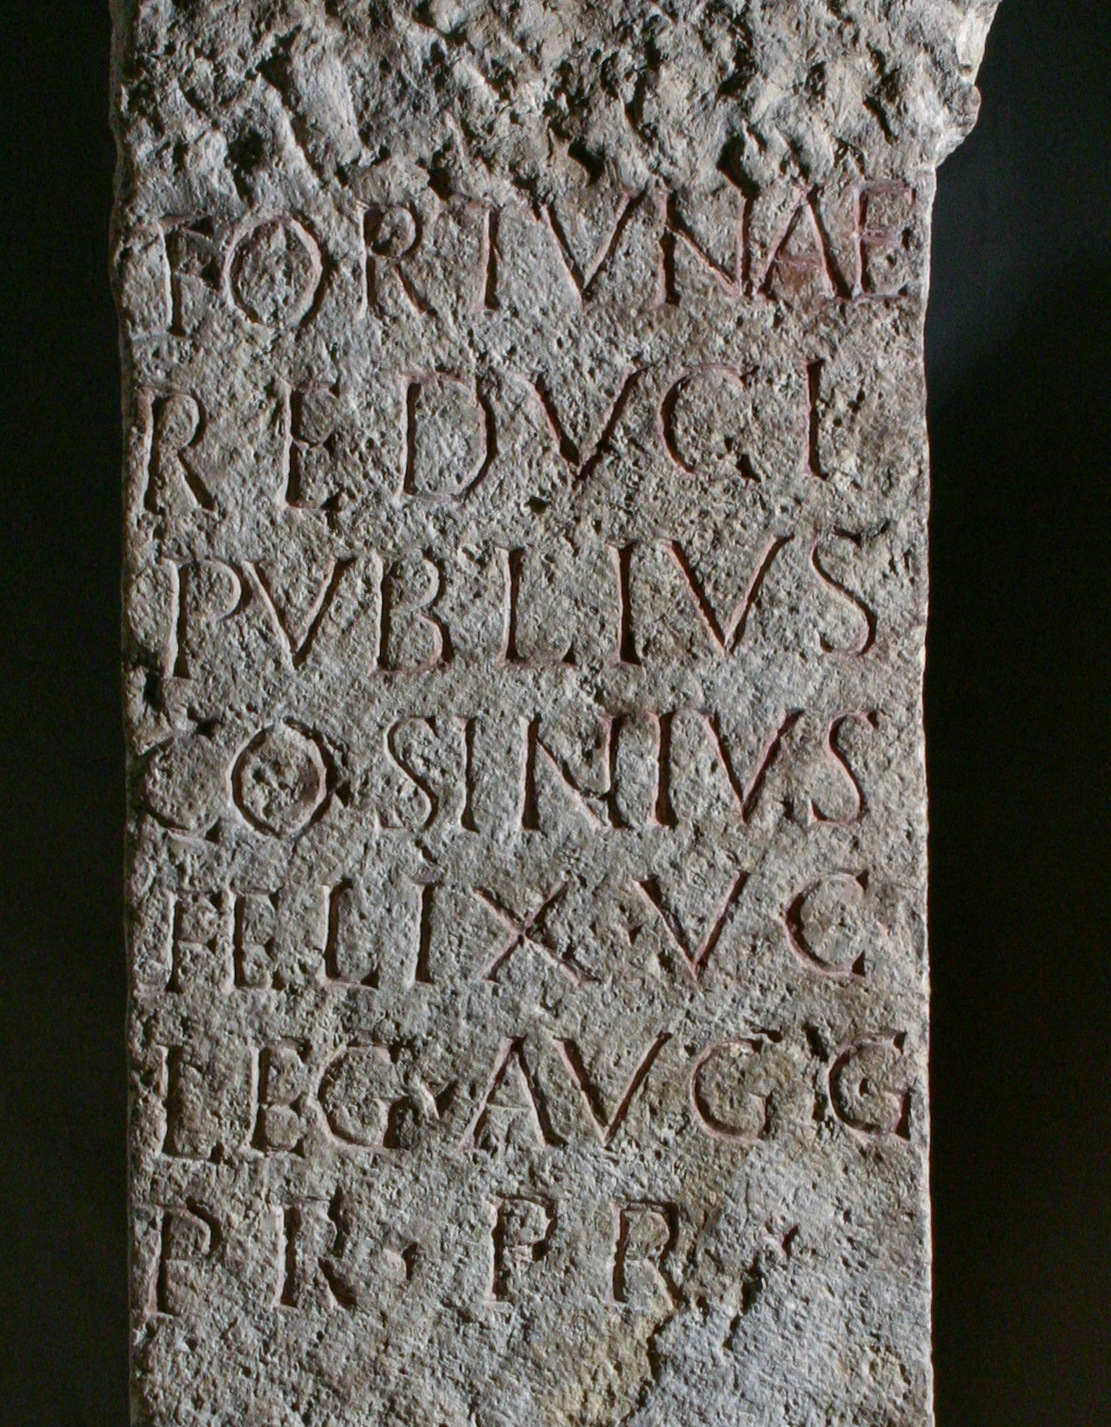 FORTVNAE
REDVCI
PVBLIVS
COSINIVS
FELIX · VC
LEG · AVGG
PR · PR ·